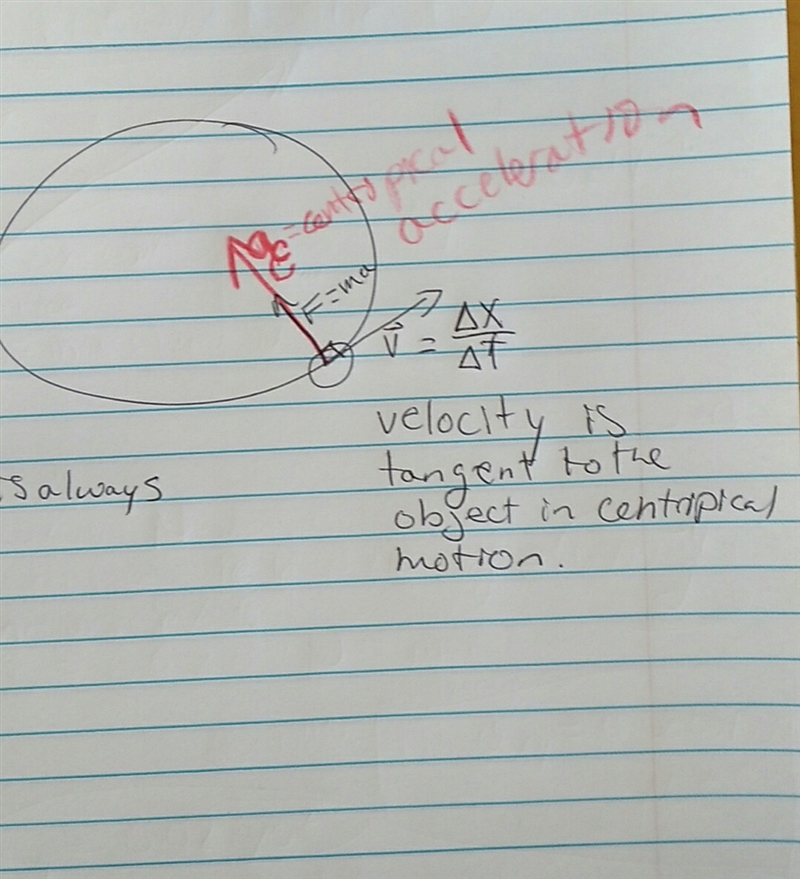 a꜀ = centripical
acceleration
F = ma
V⃗ = ΔX/Δt
velocity is
tangent to the
object in centripical
motion.
s always